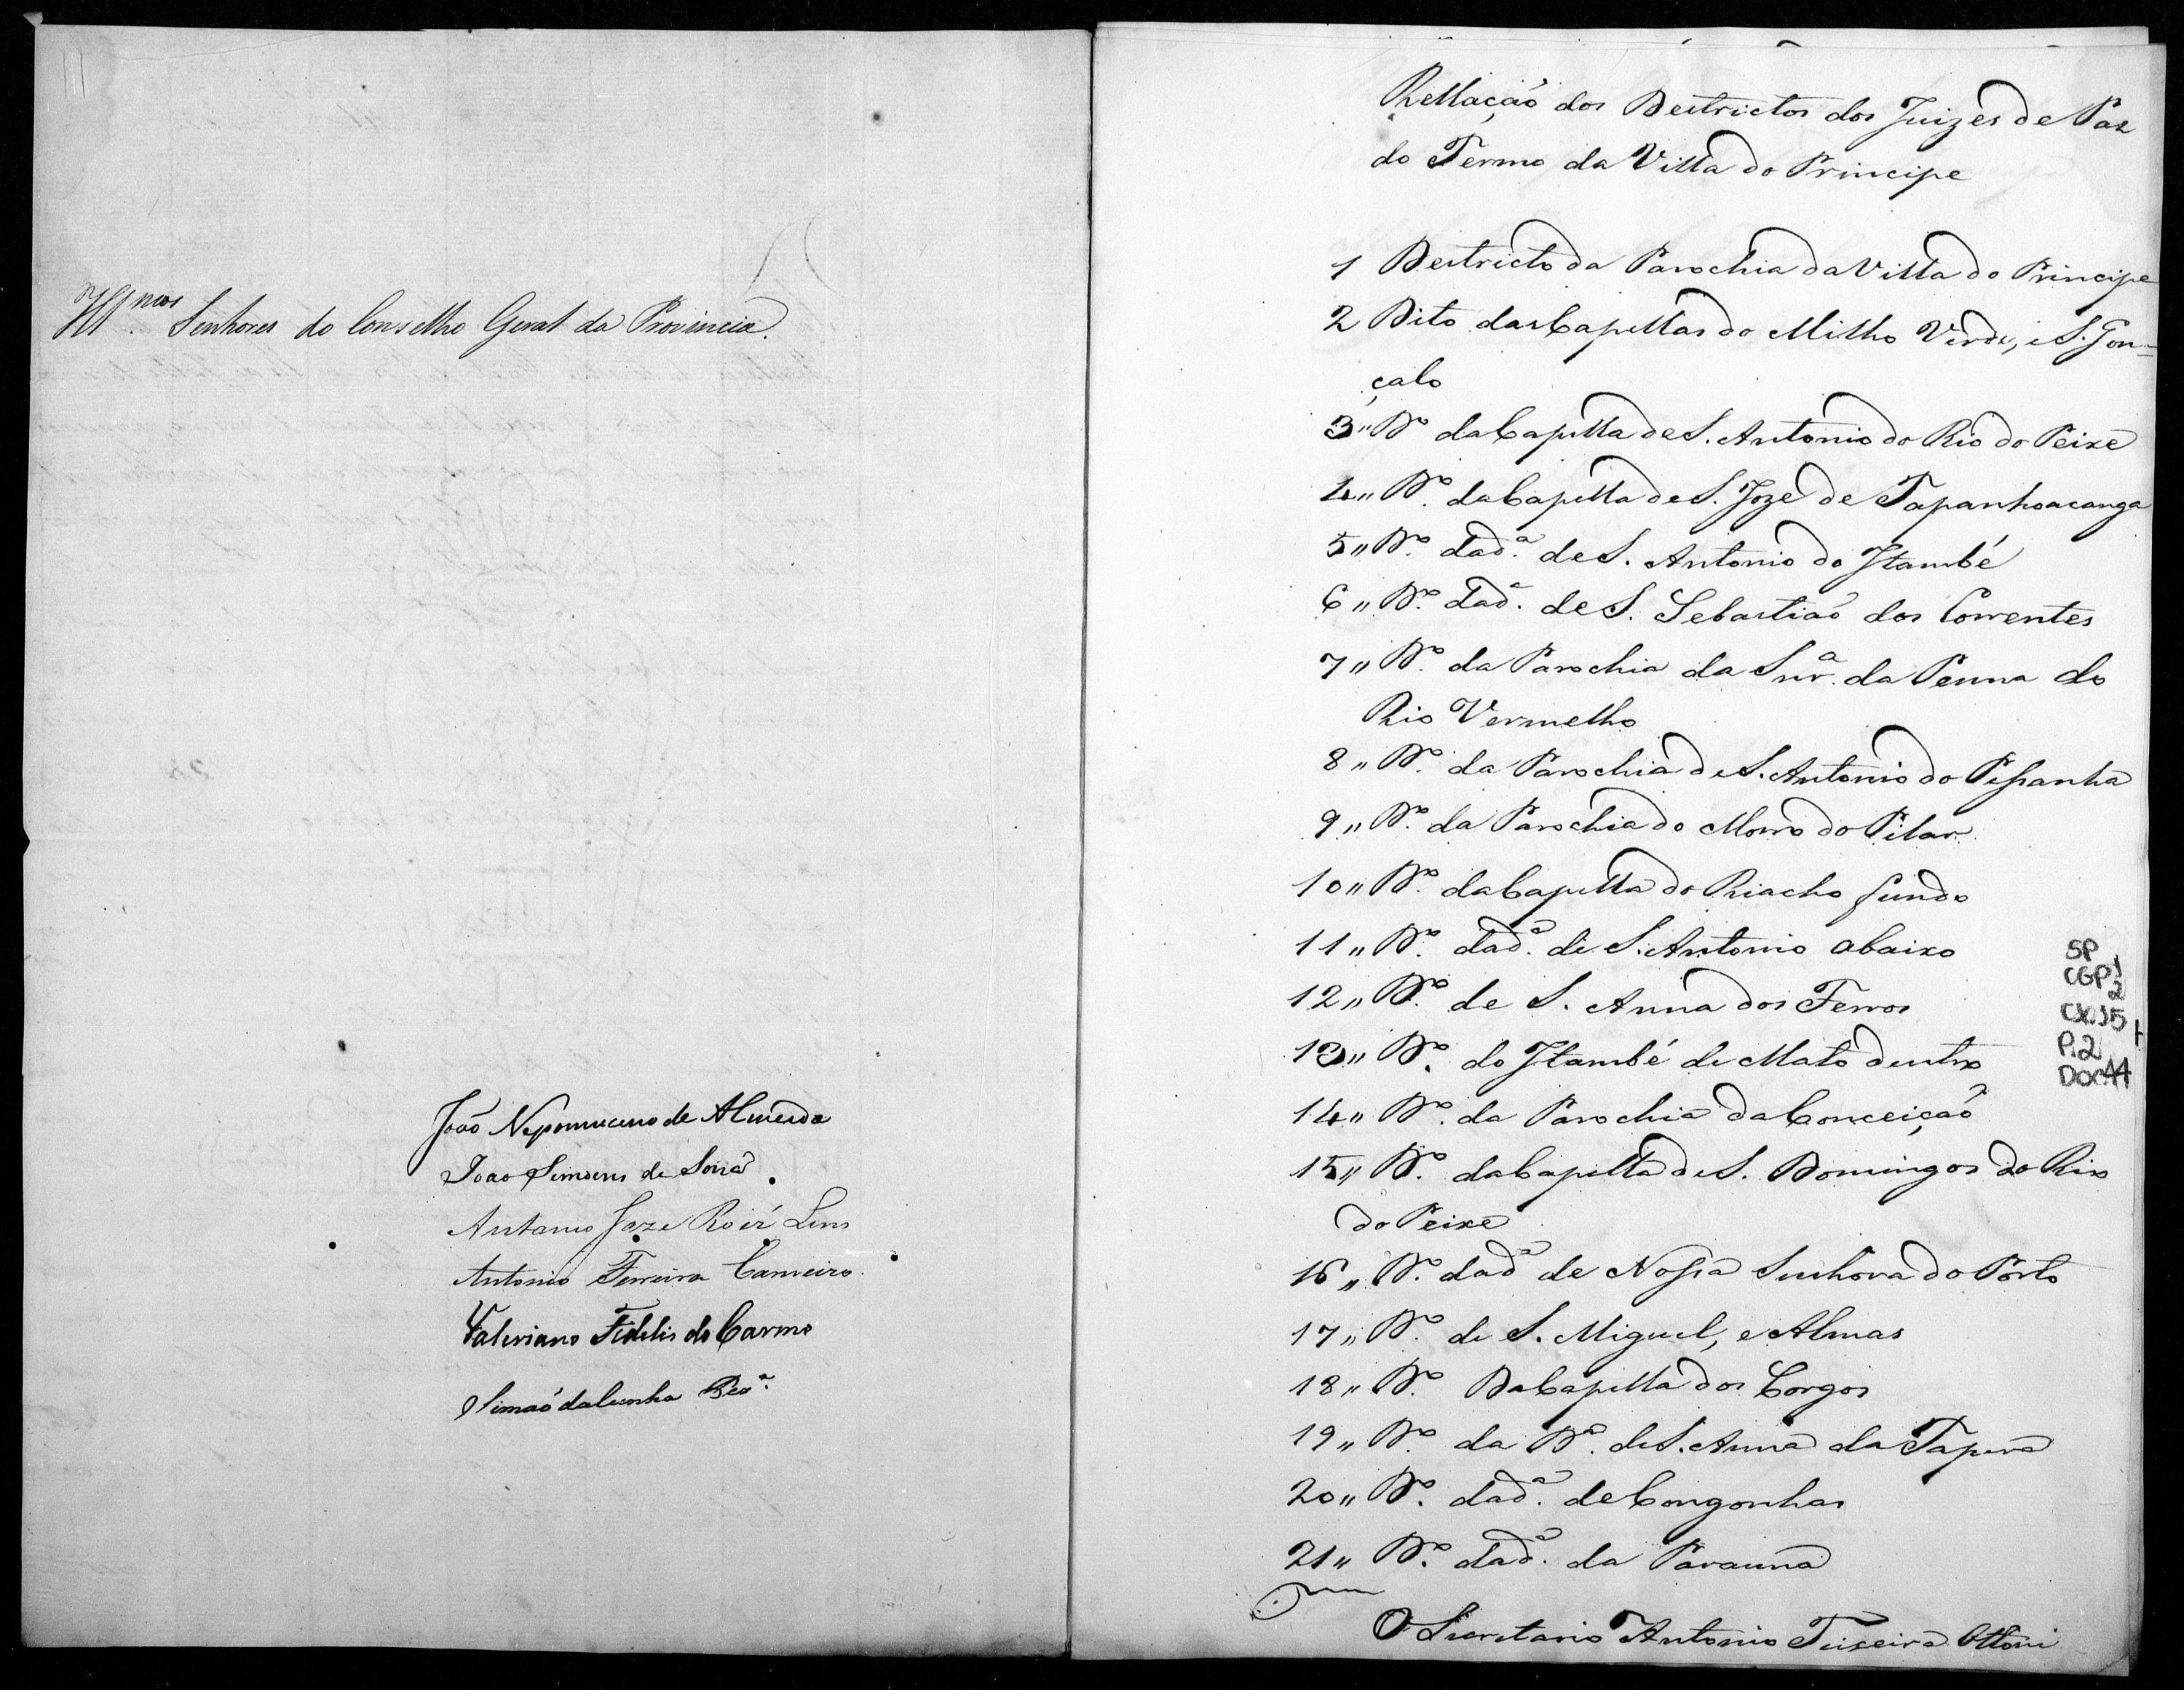 Ill.mos Senhores do Conselho Geral da Provincia.
João Nepomuceno de Almeida
Joao Simoens de Souza
Antonio Joze Roiz Lins
Antonio Ferreira Carneiro.
Valeriano Fidelis do Carmo
Simaõ da Cunha Per.a
Rellaçaõ dos Destrictos dos Juizes de Paz
do Termo da Villa do Principe
1 Destricto da Parochia da Villa do Principe
2 Dito das Capellas do Milho Verde, e S. Gon=
çalo
3" D.o da Capella de S. Antonio do Rio do Peixe
4" D.o da Capella de S. Joze de Tapanhoacanga
5" D.o da d.a de S. Antonio do Itambé
6" D.o da d.a de S. Sebastiaõ dos Correntes
7" D.o da Parochia da Snr.a da Penna do
Rio Vermelho
8" D.o da Parochia de S. Antonio do Pessanha
9" D.o da Parochia do Morro do Pilar
10" D.o da Capella do Riacho fundo
11" D.o da d.a de S. Antonio abaixo
12" D.o de S. Anna dos Ferros
13" D.o do Itambé de Mato dentro
14" D.o da Parochia da Conceiçaõ
15" D.o da Capella de S. Domingos do Rio
do Peixe
16" D.o da d.a de Nossa Senhora do Porto
17" D.o de S. Miguel, e Almas
18" D.o Da Capella dos Corgos
19" D.o da D.a de S. Anna da Tapera
20" D.o da d.a de Congonhas
21" D.o da d.a da Parauna
O Secretario Antonio Teixeira Ottoni
SP
CGP1
2
CX.15
P.2
DOC.44